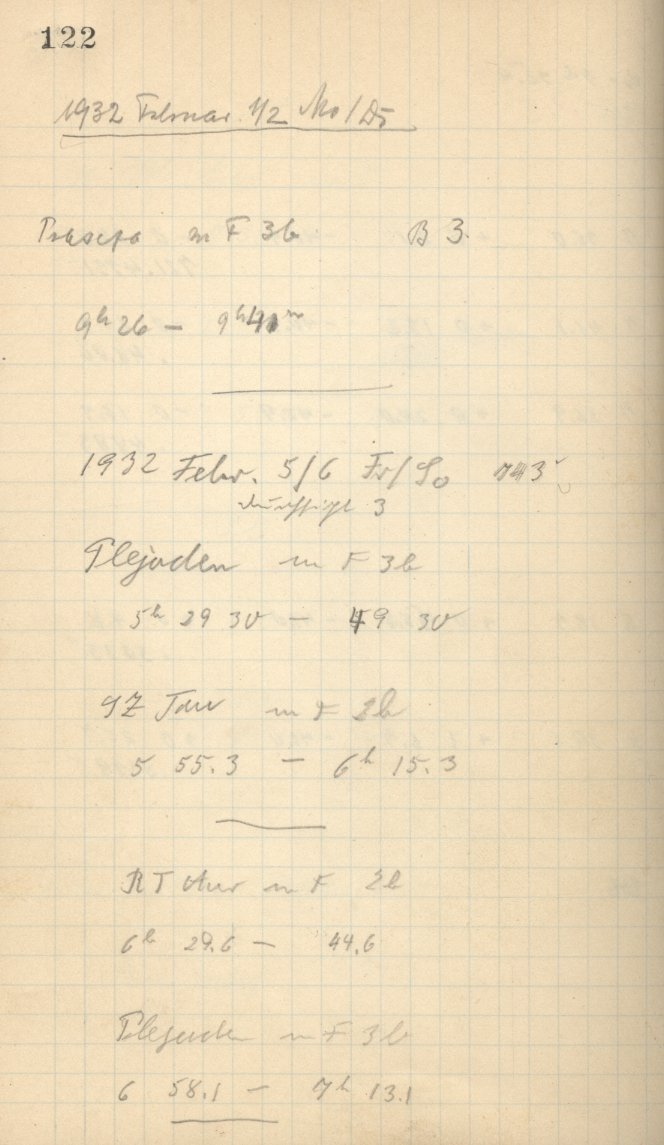 122
1932 Februar 1/2 Mo/Di
Praesepe m F 3b B 3.
9h 26 — 9h 41m
1932 Febr. 5/6 Fr/So 743
durchsicht 3
Plejaden m F 3b
5h 29 30 — 49 30
SZ Tau m F 2b
5 55.3 — 6h 15.3
RT Aur m F 2b
6h 29.6 — 44.6
Plejaden m F 3b
6 58.1 — 7h 13.1